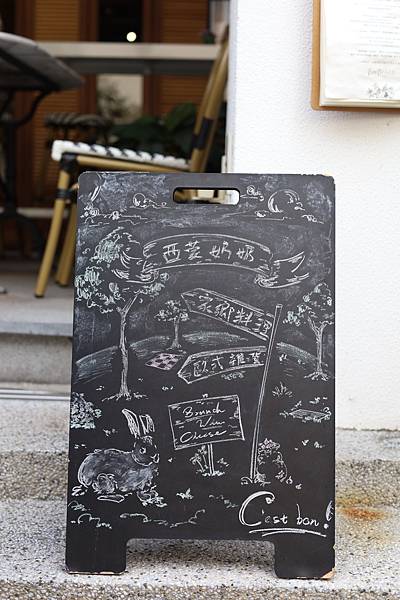 西蒙奶奶
家鄉料理
歐式雜貨
Brunch
Win
Cheese
C'est bon!